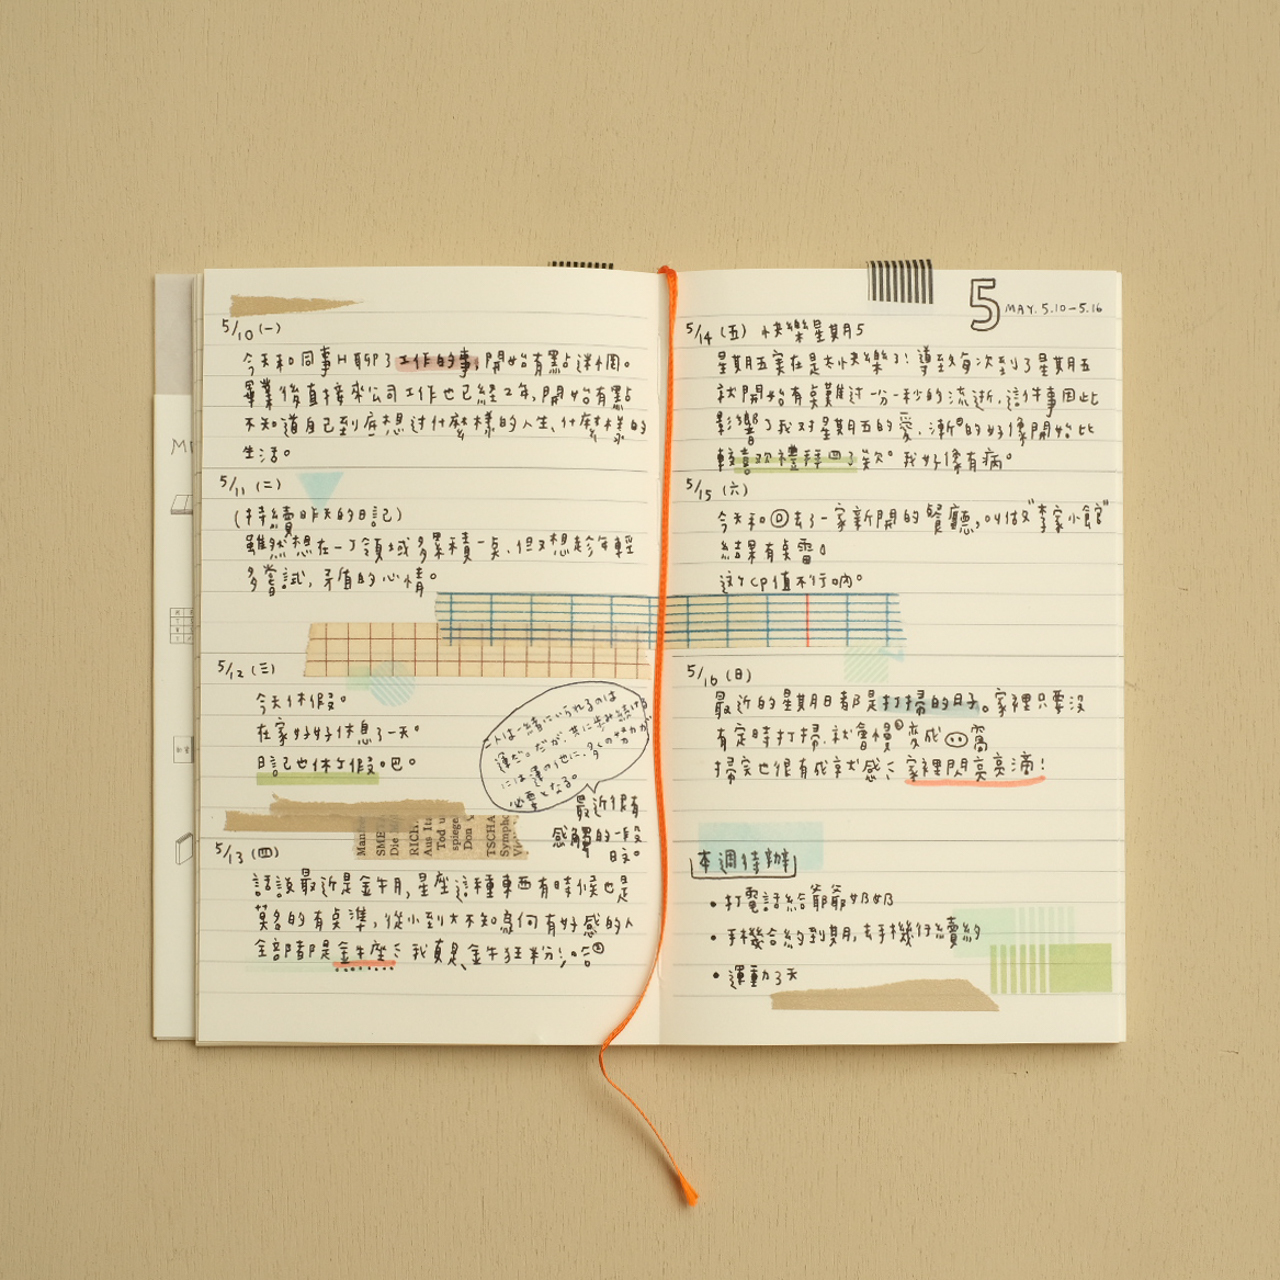 5/10 (一)
今天和同事H聊了工作的事,開始有點迷惘。
畢業後直接來公司工作也已經2年,開始有點
不知道自己到底想过什麼樣的人生、什麼樣的
生活。
5/11 (二)
(持續昨天的日記)
雖然想在一个領域多累積一点、但又想趁年輕
多嘗試,矛盾的心情。
5/12 (三)
今天休假。
在家好好休息了一天。
日記也休个假。吧。
二人は一緒にいられるのは
運だ。だが、共に歩み続ける
には運の他に、多くの努力が
必要となる。
最近很有
感觸的一段
日文。
Man
SME
Die
RICH
Aus Ita
Tod u
spiege
Don
TSCHA
Sympho
5/13 (四)
話說最近是金牛月,星座這種東西有時候也是
莫名的有点準,從小到大不知為何有好感的人
全部都是金牛座 我真是金牛狂粉!。哈
5 MAY. 5.10-5.16
5/14 (五) 快樂星期5
星期五実在是太快樂了!導致每次到了星期五
就開始有点難过一分一秒的流逝,這件事因此
影響了我对星期五的愛、漸的好像開始比
較喜欢禮拜四了欸。我好像有病。
5/15 (六)
今天和D去了一家新開的餐廳,叫做"李家小館"
結果有点雷。
这个CP值不行吶。
5/16 (日)
最近的星期日都是打掃的日子。家裡只要沒
有定時打掃、就會慢變成窩
掃完也很有成就感 家裡閃亮亮滴!
本週待辦
• 打電話給爺爺奶奶
• 手機合約到期,去手機行續約
• 運動3天